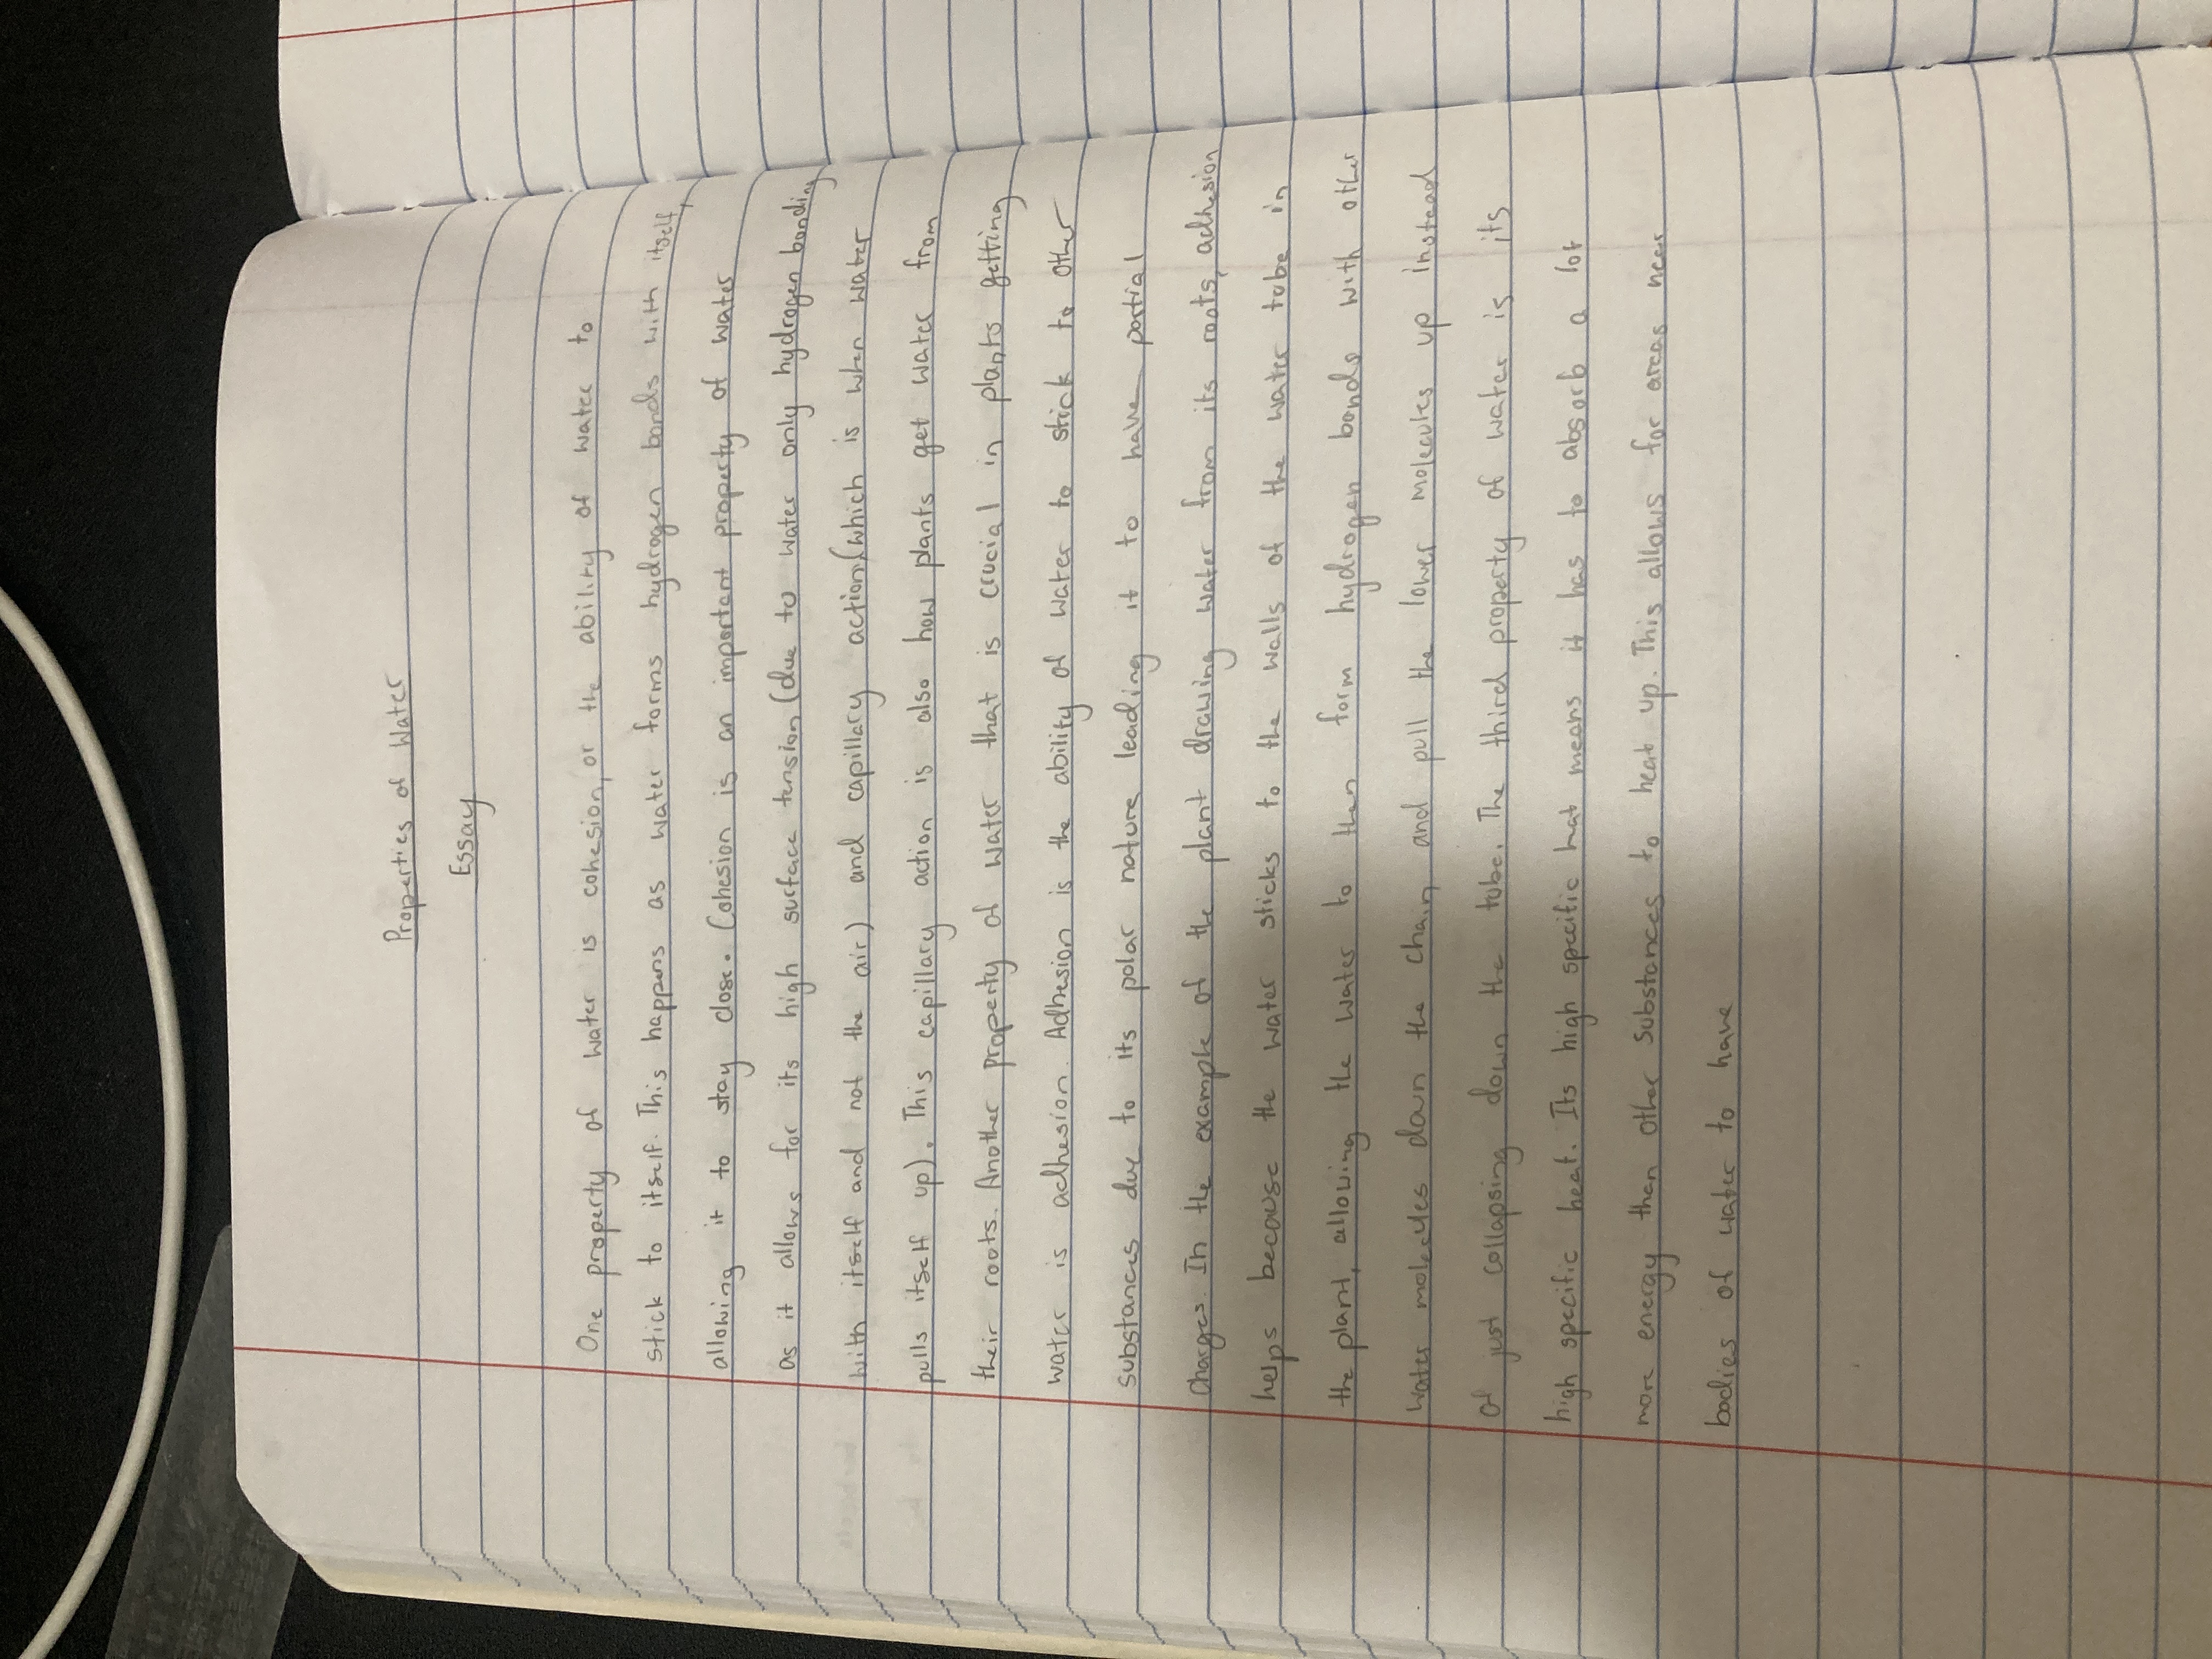 Properties of Water
Essay
One property of water is cohesion, or the ability of water to
stick to itself. This happens as water forms hydrogen bonds with itself,
allowing it to stay close. Cohesion is an important property of water
as it allows for its high surface tension (due to water only hydrogen bonding
with itself and not the air) and capillary action (which is when water
pulls itself up). This capillary action is also how plants get water from
their roots. Another property of water that is crucial in plants getting
water is adhesion. Adhesion is the ability of water to stick to other
substances due to its polar nature leading it to have partial
charges. In the example of the plant drawing water from its roots, adhesion
helps because the water sticks to the walls of the water tube in
the plant, allowing the water to then form hydrogen bonds with other
water molecules down the chain and pull the lower molecules up instead
of just collapsing down the tube. The third property of water is its
high specific heat. Its high specific heat means it has to absorb a lot
more energy than other substances to heat up. This allows for areas near
bodies of water to have